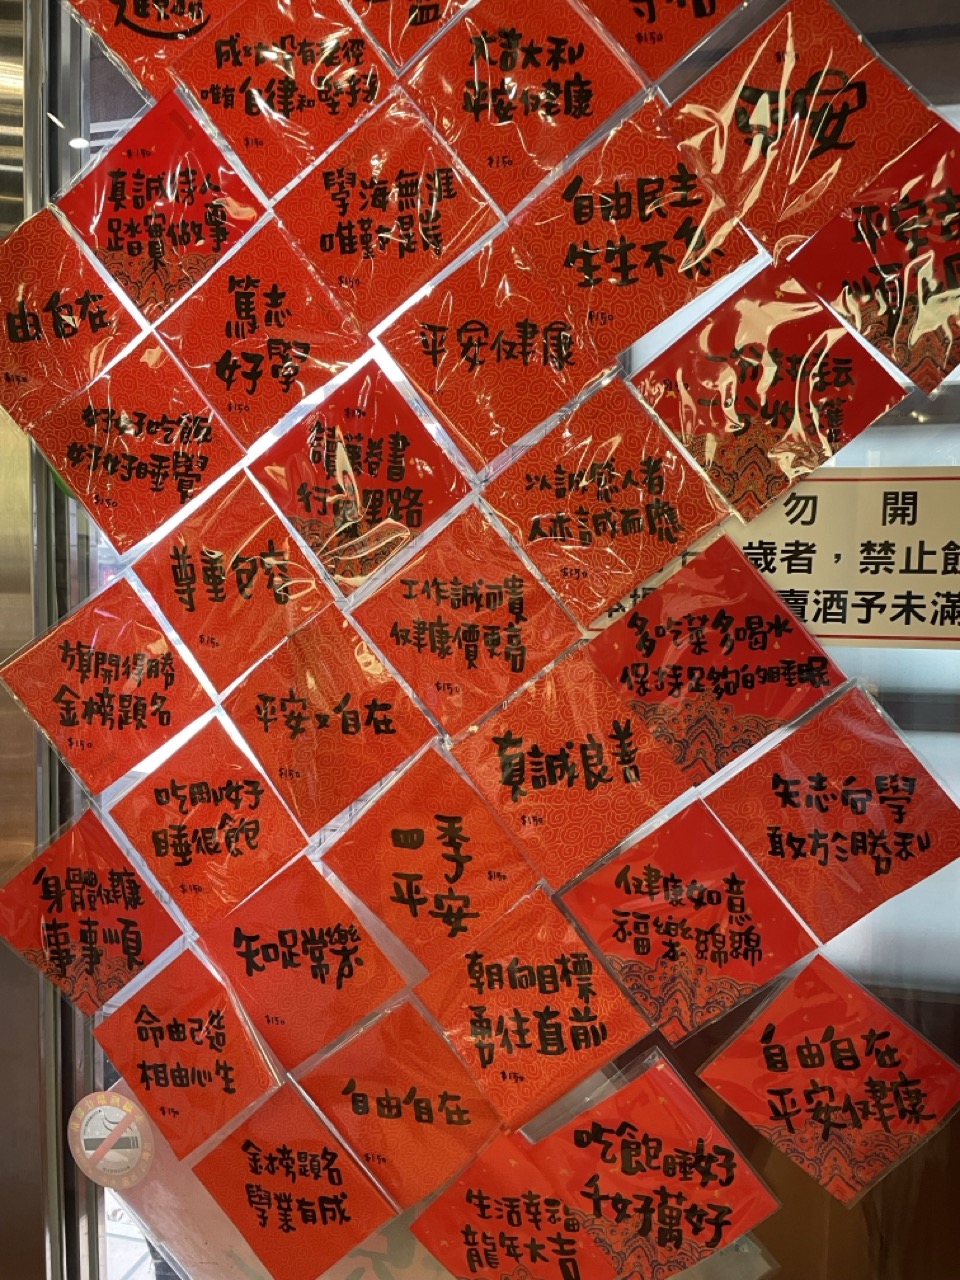 成功沒有捷徑
唯有自律和堅持
$150
大吉大利
平安健康
$150
$150
平安
$150
真誠待人
踏實做事
學海無涯
唯勤是岸
$150
自由民主
生生不息
$150
平安
由自在
$150
篤志
好學
$150
平安健康
一分耕耘
一分收穫
好好吃飯
好好睡覺
$150
$150
讀萬卷書
行萬里路
以誠感人者
人亦誠而應
$150
勿開
歲者，禁止飲
賣酒予未滿
尊重包容
$150
工作誠可貴
健康價更高
$150
多吃菜多喝水
保持足夠的睡眠
旗開得勝
金榜題名
$150
平安又自在
$150
真誠良善
$150
吃剛好
睡很飽
$150
矢志向學
敢方於勝利
四季
平安
$150
身體健康
事事順
健康如意
福樂綿綿
知足常樂
$150
朝向目標
勇往直前
$150
命由己造
相由心生
$150
自由自在
平安健康
自由自在
$150
金榜題名
學業有成
吃飽睡好
千好萬好
生活幸福
龍年大吉